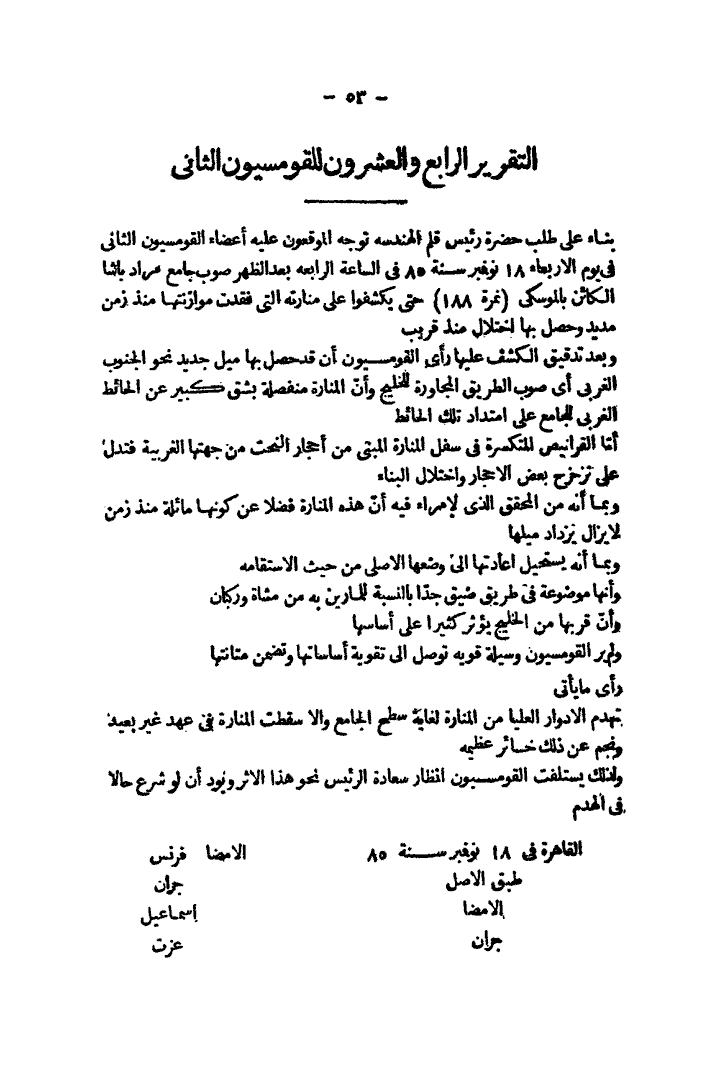 - ٥٣ -
التقرير الرابع والعشرون للقومسيون الثانى
بناء على طلب حضرة رئيس قلم الهندسه توجه الموقعون عليه أعضاء القومسيون الثانى
فى يوم الاربعاء ١٨ نوفمبر سنة ٨٥ فى الساعة الرابعه بعد الظهر صوب جامع مراد باشا
الكائن بالموسكى (نمرة ١٨٨) حتى يكشفوا على منارته التى فقدت موازنتها منذ زمن
مديد وحصل بها اختلال منذ قريب
وبعد تدقيق الكشف عليها رأى القومسيون أن قد حصل بها ميل جديد نحو الجنوب
الغربى أى صوب الطريق المجاورة للخليج وأنّ المنارة منفصلة بشق كبير عن الحائط
الغربى للجامع على امتداد تلك الحائط
أمّا القرانيص المتكسرة فى سفل المنارة المبنى من أحجار النحت من جهتها الغربية فتدل
على تزحزح بعض الاحجار واختلال البناء
وبما أنه من المحقق الذى لامراء فيه أنّ هذه المنارة فضلا عن كونها مائلة منذ زمن
لايزال يزداد ميلها
وبما أنه يستحيل اعادتها الى وضعها الاصلى من حيث الاستقامه
وأنها موضوعة فى طريق ضيق جدّا بالنسبة للمارين به من مشاة وركبان
وأنّ قربها من الخليج يؤثر كثيرا على أساسها
ولم ير القومسيون وسيلة قويه توصل الى تقوية أساساتها وتضمن متانتها
رأى مايأتى
تهدم الادوار العليا من المنارة لغاية سطح الجامع والا سقطت المنارة فى عهد غير بعيد
ونجم عن ذلك خسائر عظيمه
ولذلك يستلفت القومسيون انظار سعادة الرئيس نحو هذا الاثر ويود أن لو شرع حالا
فى الهدم
القاهرة فى ١٨ نوفمبر سنة ٨٥ الامضا فرنس
طبق الاصل جران
الامضا اسماعيل
جران عزت